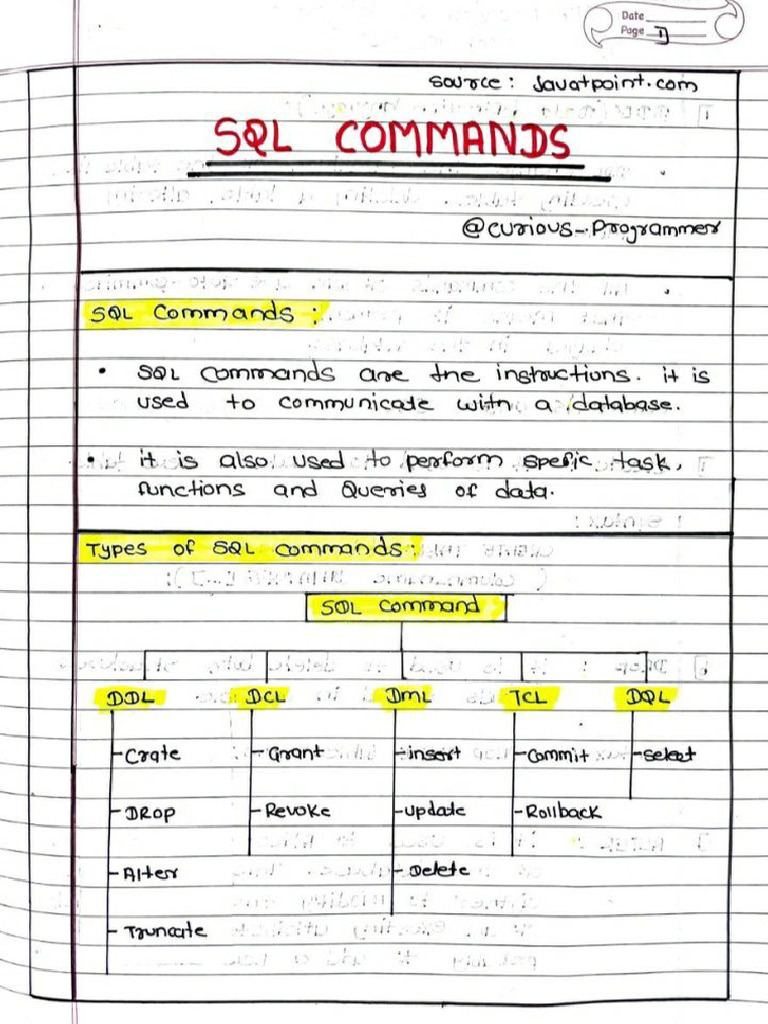 Date
Page 1
source: Javatpoint.com
SQL COMMANDS
@curious_.Programmer
SQL Commands :
• SQL commands are the instructions. it is
used to communicate with a database.
• it is also used to perform spefic task,
functions and Queries of data.
Types of SQL commands:
SQL Command
DDL DCL DML TCL DQL
Crate Grant insert Commit select
DROP Revoke update Rollback
Alter Delete
Truncate